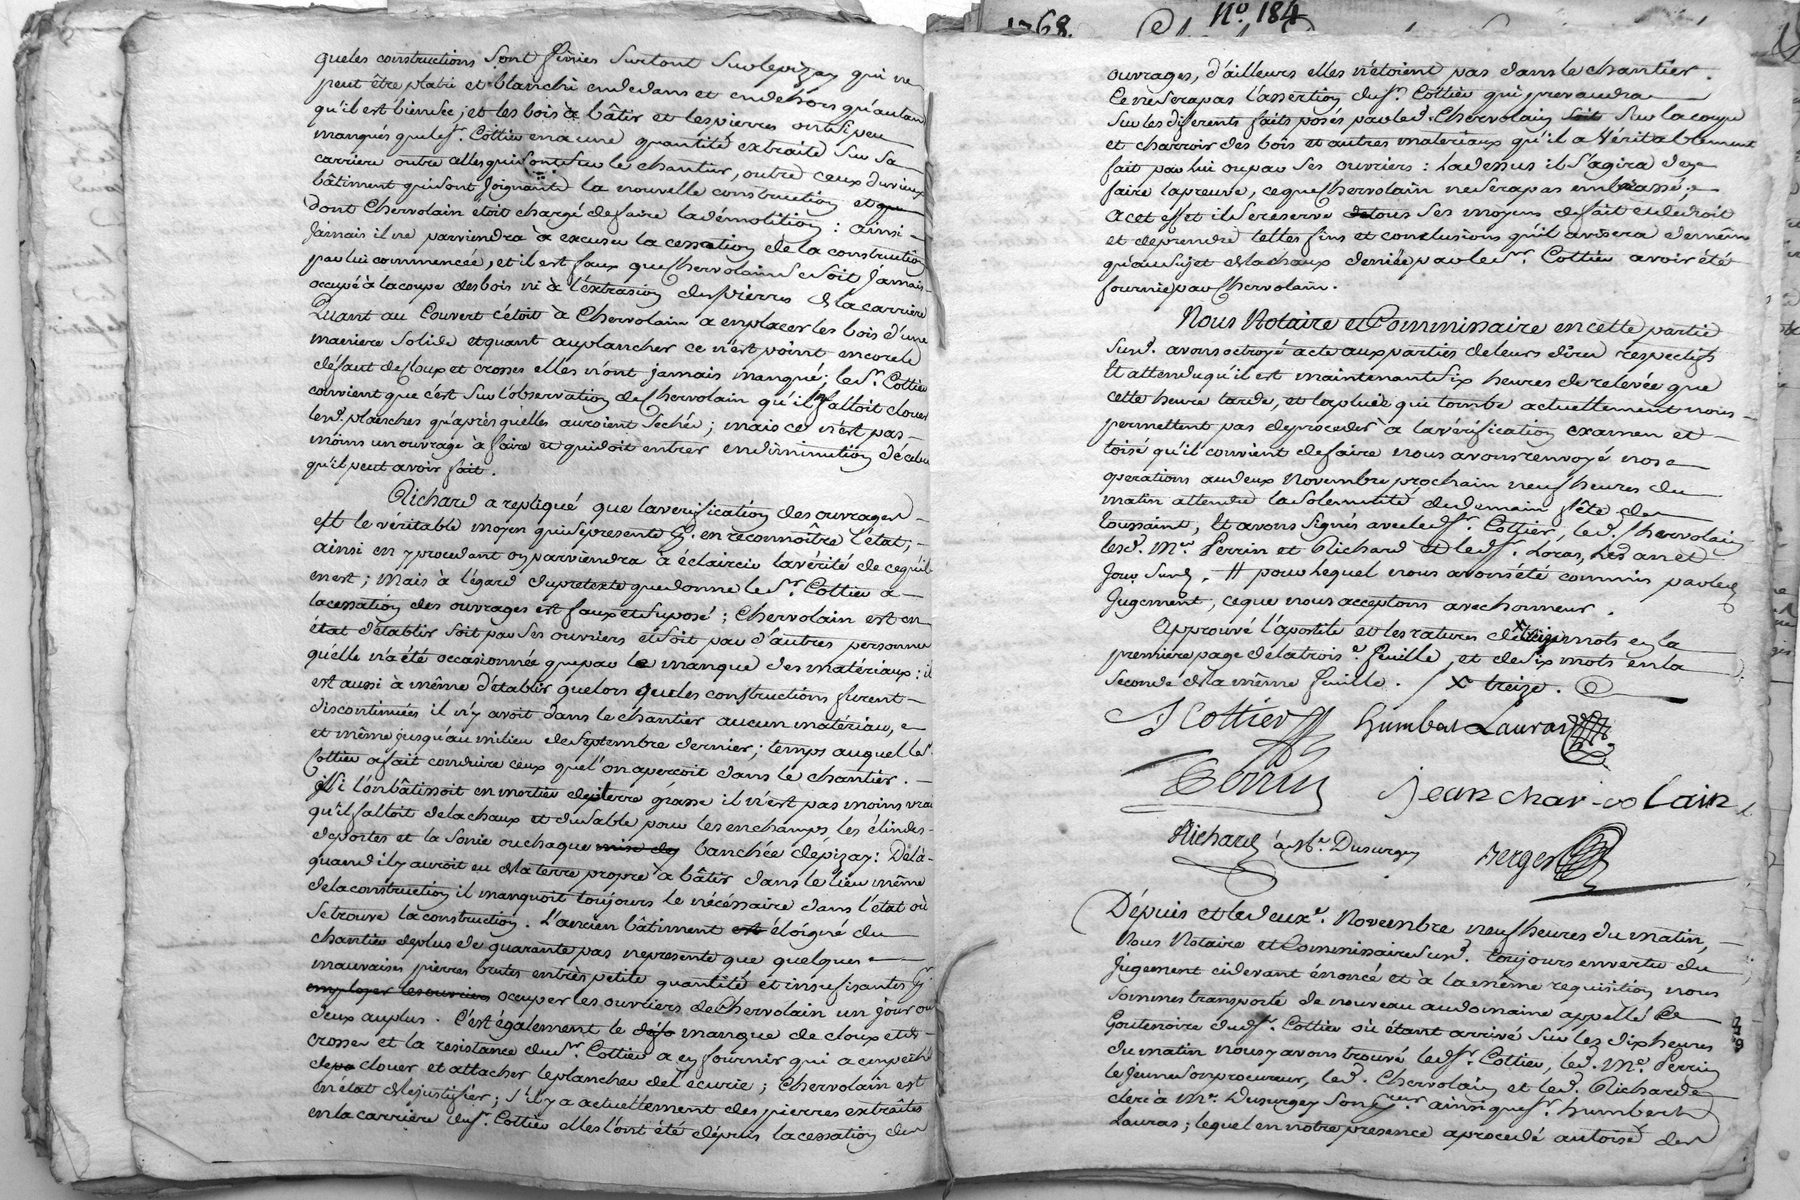 queles constructions Sont finies Surtout Sur le pizay qui ne
peut être platré et blanchi en dedans et en dehors qu'autan
qu'il est bien Sec; et les bois à bâtir et les pierres ont Si peu
manqués que le Sr. Cottier en a une quantité extraite Sur Sa
carriere outre celles qui Sont Sur le chantier, outre ceux du vieux
bâtiment qui Sont Joignants la nouvelle construction et que
dont Chervolain etoit chargé de faire la démolition : ainsi
Jamais il ne parviendra à excuser la cessation de la construction
par lui commencée, et il est faux que Chervolain Se Soit Jamais
occupé à la coupe des bois ni à l'extraction des pierres de la carriere
Quant au Couvert c'étoit à Chervolain a emplacer les bois d'une
maniere Solide et quant au plancher ce n'est point encore le
défaut de cloux et crosses elles n'ont jamais manqué; le Sr. Cottier
convient que c'est Sur l'observation de Chervolain qu'il falloit clouer
les d. planches qu'après qu'elles auroient Séché; mais ce n'est pas
moins un ouvrage à faire et qui doit entrer en diminution de celui
qu'il peut avoir fait.
Richard a repliqué que la verification des ouvrages
est le véritable moyen qui se presente pr. en reconnoître l'état;
ainsi en y procedant on parviendra à éclaircir la vérité de ce qu'il
en est; Mais à l'égard du pretexte que donne le Sr. Cottier à
la cessation des ouvrages est faux et Suposé; Chervolain est en
état d'établir Soit par Ses ouvriers et Soit par d'autres personnes
qu'elle n'a été occasionnée que par le manque des matériaux: il
est aussi à même d'établir que lors que les constructions furent
discontinuées il n'y avoit dans le chantier aucun matériau, e
et même jusqu'au milieu de Septembre dernier; temps auquel le Sr
Cottier a fait conduire ceux que l'on aperçoit dans le chantier.
Si l'on bâtissoit en mortier de terre grasse il n'est pas moins vrai
qu'il falloit de la chaux et du Sable pour les enchamps les élindes
de portes et la Sorie ou chaque mise de banchée de pizay: Délà
quand il y auroit eu de la terre propre à bâtir dans le lieu même
de la construction il manquoit toujours le nécéssaire dans l'etat où
Se trouve la construction. L'ancien bâtiment est éloigné du
chantier de plus de quarante pas ne presente que quelques
mauvaises pierres brutes en très petite quantité et insufisantes pr
employer les ouvriers occuper les ouvriers de Chervolain un jour ou
deux au plus. C'est également le défo manque de cloux et de
crosses et la resistance du Sr. Cottier a en fournir qui a empeché
de pa clouer et attacher le plancher de l'écurie; Chervolain est
en état de le justifier; S'il y a actuellement des pierres extraites
en la carriere du Sr. Cottier elles l'ont été dépuis la cessation des
1768.
No. 184
ouvrages, d'ailleurs elles n'étoient pas dans le chantier.
Ce ne Sera pas l'assertion du Sr. Cottier qui prevaudra
Sur les diferents faits posés par le d. Chervolain Soit Sur la coupe
et charroir des bois et autres materiaux qu'il a Véritablement
fait par lui ou par Ses ouvriers : La dessus il S'agira d'en
faire la preuve, ce que Chervolain ne Sera pas embrassé; e
a cet effet il Se reserve de tous Ses moyens de fait et de droit
et de prendre telles fins et conclusions qu'il avisera de même
qu'au Sujet de la chaux deniée par le Sr. Cottier avoir été
fournie par Chervolain.
Nous Notaire et Commissaire en cette partie
Susd. avons octroyé acte aux parties de leurs dires respectifs
Et attendu qu'il est maintenant Six heures de relevée que
cette heure tarde, et la pluie qui tombe actuellement nous
permettent pas de proceder à la vérification examen et
toisé qu'il convient de faire nous avons renvoyé nos
operations au deux Novembre prochain neuf heures du
matin attendu la Solemnité du demain fête de
Toussaint, Et avons Signés avec led. Sr. Cottier, led. Chervolain
lesd. Me. Perrin et Richard et led. Sr. Loras, Les an et
Jour Susd. # pour lequel nous avons été commis par led.
Jugement, ce que nous acceptons avec honneur.
Approuvé l'apostile et les ratures de mots en la
premiere page de la trois.e feuille, et de Six mots en la
Seconde de la même feuille. X treize.
J Cottier
humbert Lauras
Perrin
Jean charvolain
Richard à Me. Dusurgey
Berger
Dépuis et led. deuxe. Novembre neuf heures du matin,
Nous Notaire et Commissaire Susd. toujours en vertu du
Jugement cidevant énoncé et à la même requisition nous
Sommes transporté de nouveau au domaine appellé Le
Goutenoire dud. Sr. Cottier où étant arrivé Sur les dix heures
du matin nous y avons trouvé led. Sr. Cottier, led. Me. Perrin
le Jeune Son procureur, led. Chervolain et led. Richard
clerc à Me. Dusurgey Son preur ainsi que Sr. humbert
Lauras; lequel en notre presence a procedé au toisé des